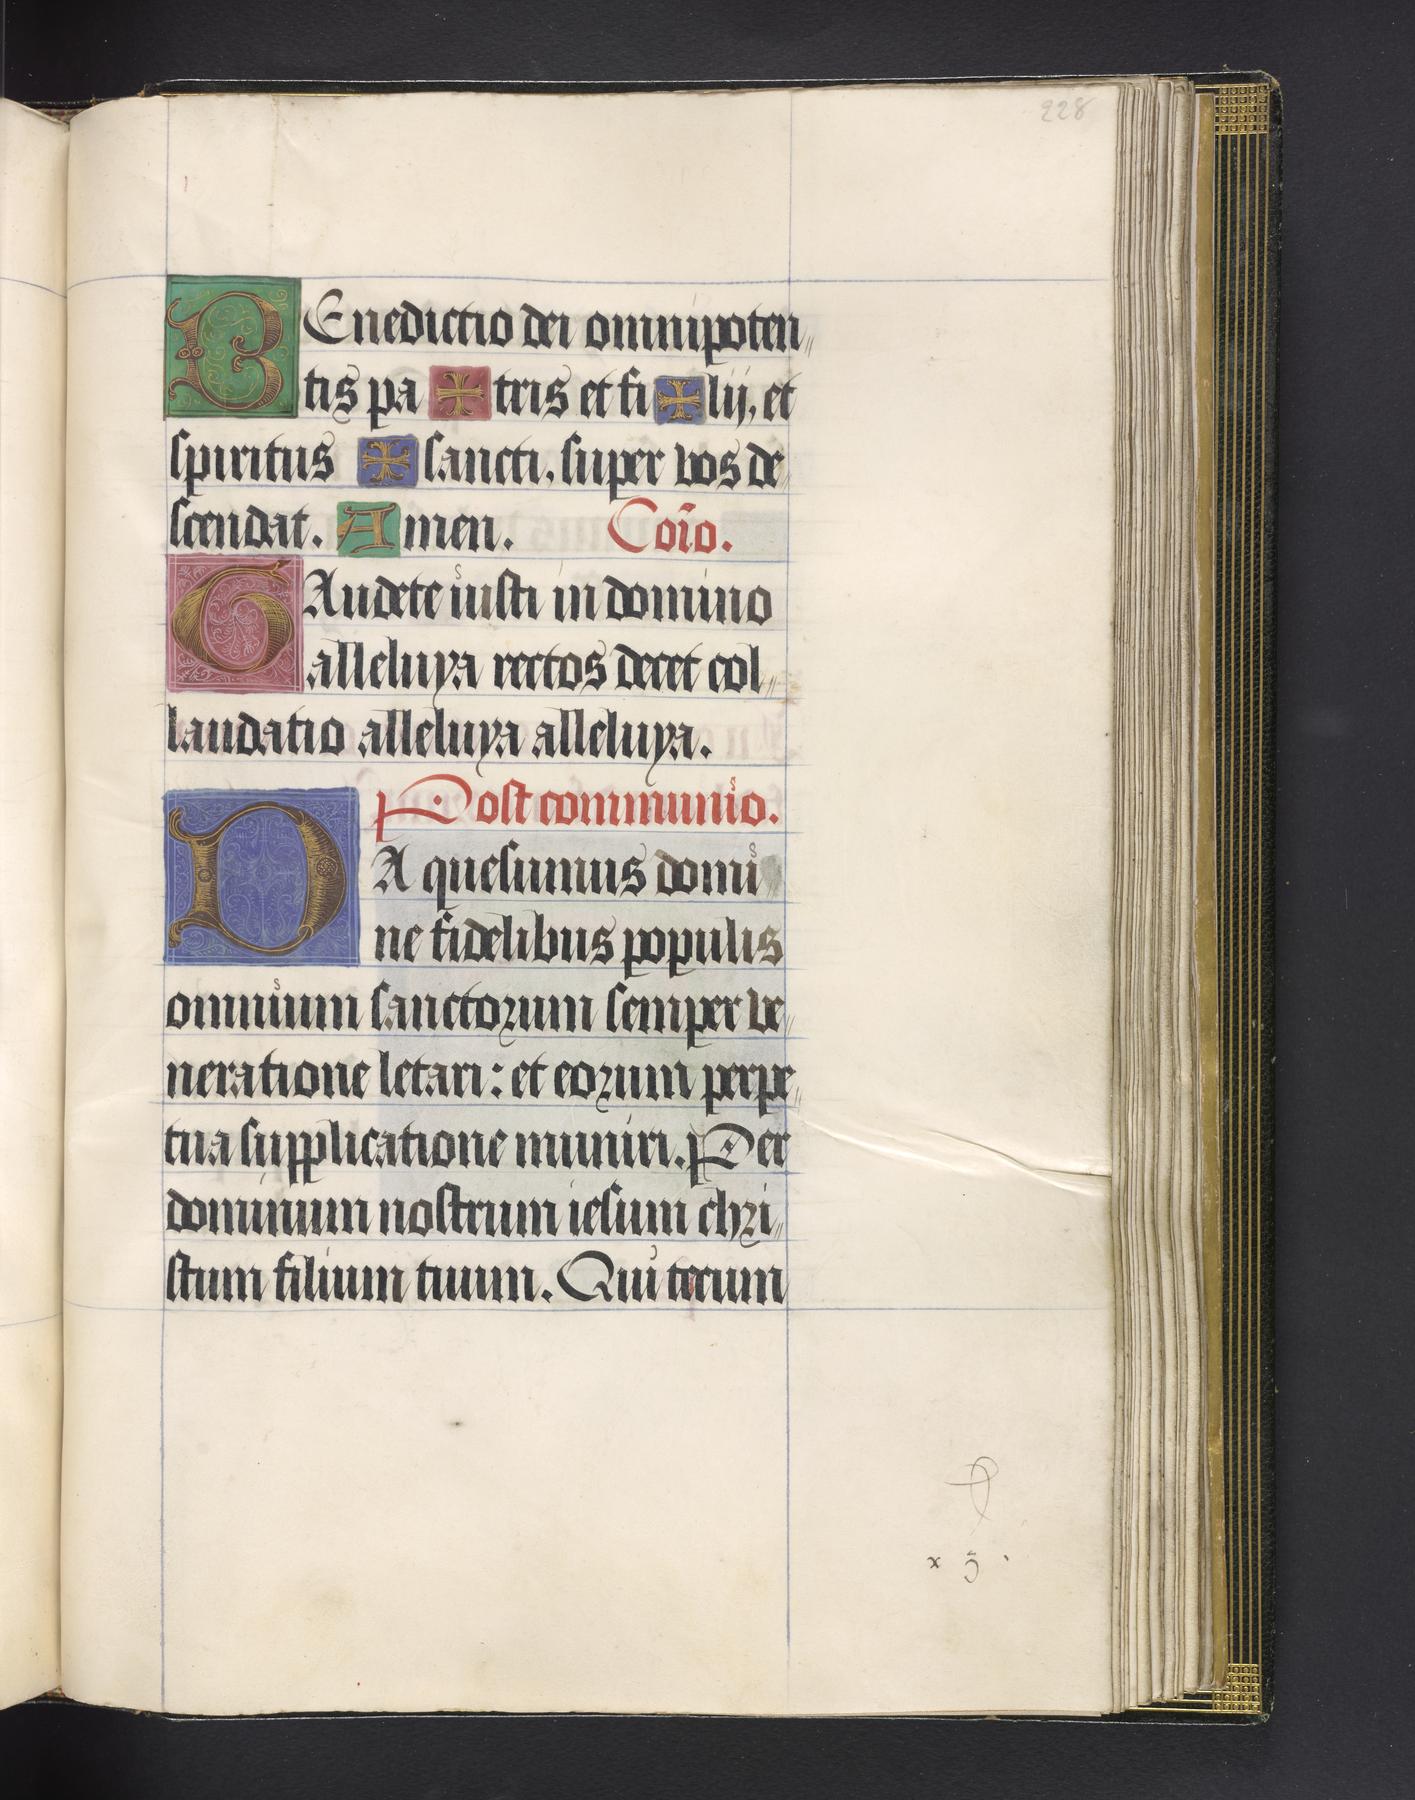 228
BEnedictio dei omnipoten„
tis pa ✠ tris et fi ✠ lij, et
spiritus ✠ sancti. super vos de„
scendat. Amen. Coi͞o.
GAudete iusti in domino
alleluya rectos decet col„
laudatio alleluya alleluya.
Post communio.
DA quesumus domi
ne fidelibus populis
omnium sanctorum semper ve„
neratione letari: et eorum perpe„
tua supplicatione muniri. Per
dominum nostrum iesum chri„
stum filium tuum. Qui tecum